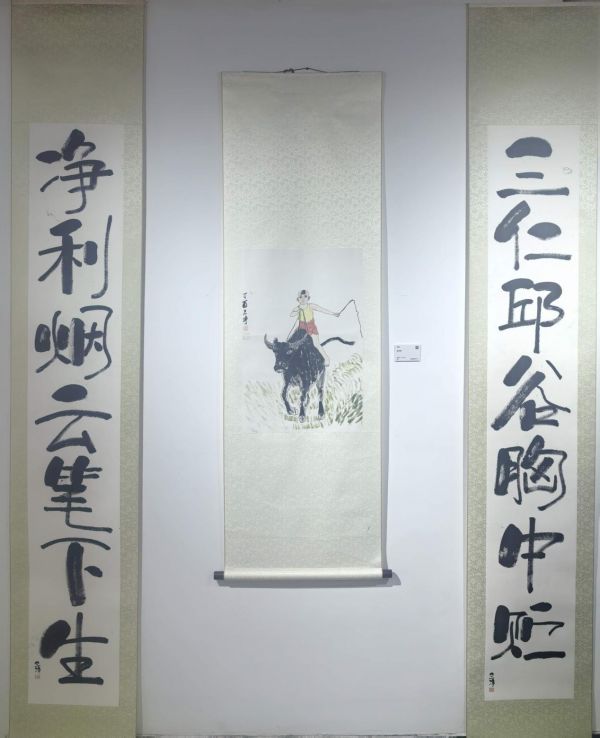 三仁邱谷胸中贮
净利烟云笔下生
丁酉